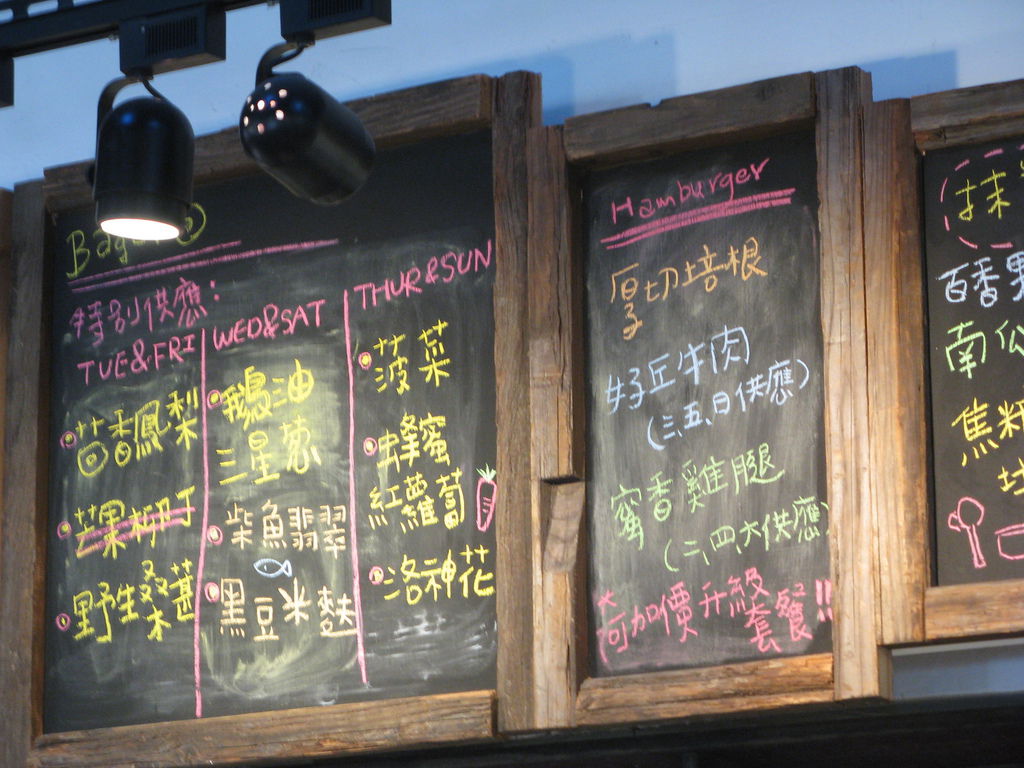 Bagel
特別供應:
TUE&FRI
茴香鳳梨
芒果椰子
野生桑葚
WED&SAT
鵝油
三星蔥
柴魚翡翠
黑豆米麩
THUR&SUN
菠菜
蜂蜜
紅蘿蔔
洛神花
Hamburger
厚切培根
子
牛肉
(三、五、日供應)
蜜香雞腿
(二、四、六供應)
*可加價升級
套餐!!
抹
百香果
南瓜
焦糖